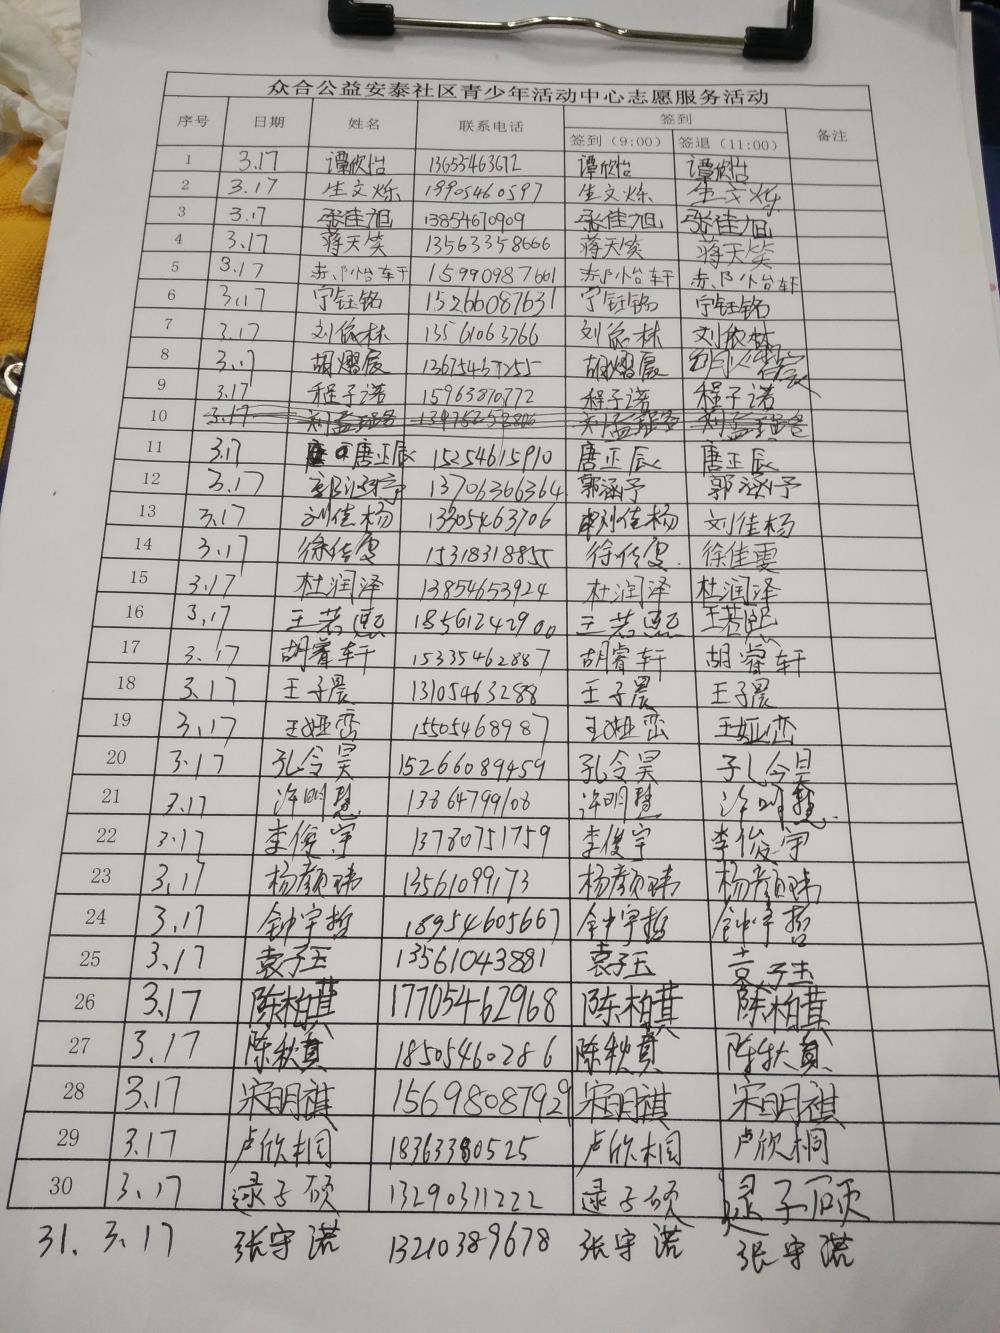 众合公益安泰社区青少年活动中心志愿服务活动
序号 日期 姓名 联系电话 签到 备注
签到（9:00） 签退（11:00）
1 3.17 谭欣怡 13655463672 谭欣怡 谭欣怡
2 3.17 生文烁 19905460597 生文烁 生文烁
3 3.17 张佳旭 13854670909 张佳旭 张佳旭
4 3.17 蒋天笑 13563358666 蒋天笑 蒋天笑
5 3.17 15990987661
6 3.17 宁钰铭 15266087631 宁钰铭 宁钰铭
7 3.17 刘依林 13561063766 刘依林 刘依林
8 3.17 胡熠宸 胡熠宸
9 3.17 程子诺 15963870772 程子诺 程子诺
10 3.17
11 3.17 唐正辰 15254615910 唐正辰 唐正辰
12 3.17 郭涵予 13706366364 郭涵予 郭涵予
13 3.17 刘佳杨 13305463706 刘佳杨 刘佳杨
14 3.17 徐佳雯 15318318855 徐佳雯 徐佳雯
15 3.17 杜润泽 13854653924 杜润泽 杜润泽
16 3.17 王若熙 18561242900 王若熙 王若熙
17 3.17 胡睿轩 15335462887 胡睿轩 胡睿轩
18 3.17 王子晨 13105463288 王子晨 王子晨
19 3.17 王娅峦 15505468987 王娅峦 王娅峦
20 3.17 孔令昊 15266089459 孔令昊 孔令昊
21 3.17 许明慧 13864799108 许明慧 许明慧
22 3.17 李俊宇 13780751759 李俊宇 李俊宇
23 3.17 杨颜玮 13561099173 杨颜玮 杨颜玮
24 3.17 钟宇哲 18954605667 钟宇哲 钟宇哲
25 3.17 袁子玉 13561043881 袁子玉 袁子玉
26 3.17 陈柏蓂 17705462968 陈柏蓂 陈柏蓂
27 3.17 陈秋蓂 18505460286 陈秋蓂 陈秋蓂
28 3.17 宋明祺 15698087929 宋明祺 宋明祺
29 3.17 卢欣桐 18363380525 卢欣桐 卢欣桐
30 3.17 逯子硕 13290311222 逯子硕 逯子硕
31. 3.17 张宇诺 13210389678 张宇诺 张宇诺